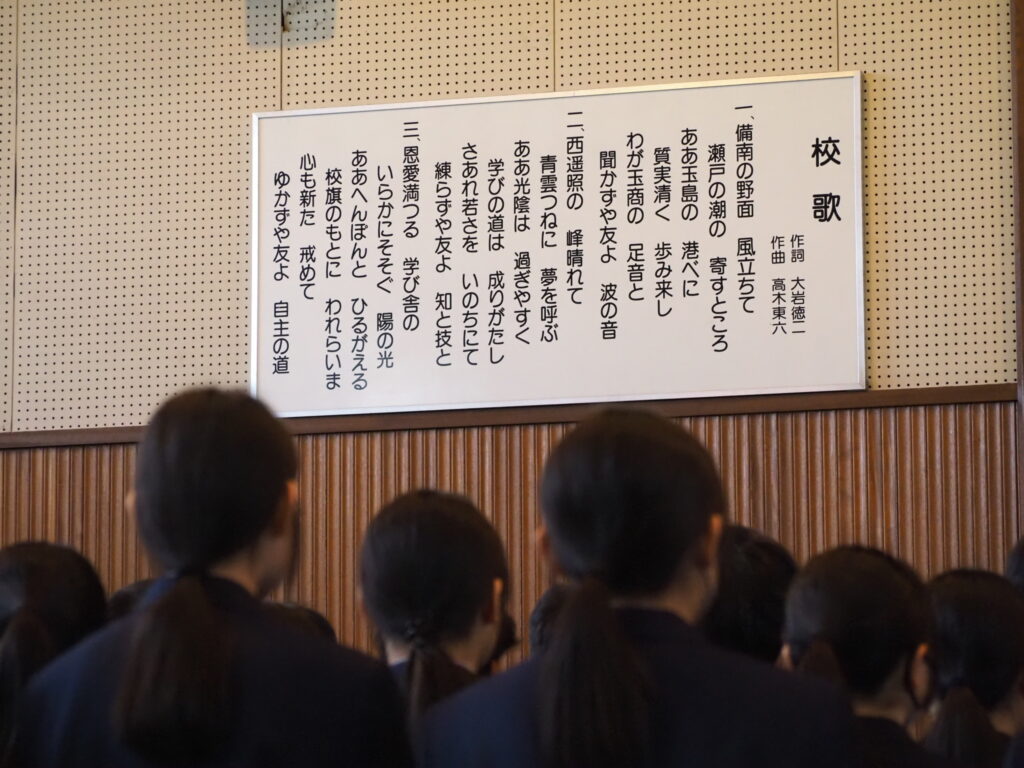 校歌
作詞 大岩徳二
作曲 高木東六
一、備南の野面 風立ちて
瀬戸の潮の 寄すところ
ああ玉島の 港べに
質実清く 歩み来し
わが玉商の 足音と
聞かずや友よ 波の音
二、西遥照の 峰晴れて
青雲つねに 夢を呼ぶ
ああ光陰は 過ぎやすく
学びの道は 成りがたし
さあれ若さを いのちにて
練らずや友よ 知と技と
三、恩愛満つる 学び舎の
いらかにそそぐ 陽の光
ああへんぽんと ひるがえる
校旗のもとに われらいま
心も新た 戒めて
ゆかずや友よ 自主の道